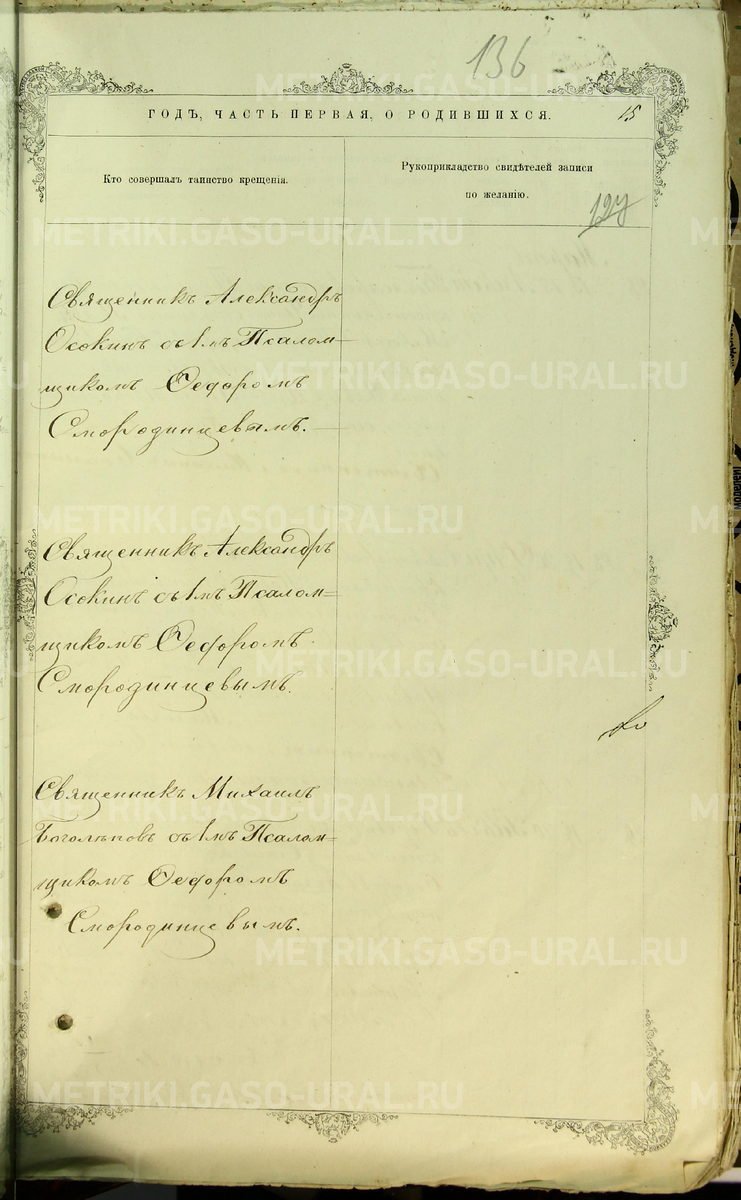 136
ГОДЪ, ЧАСТЬ ПЕРВАЯ, О РОДИВШИХСЯ.
15
Кто совершалъ таинство крещенія.
Рукоприкладство свидѣтелей записи
по желанію.
127
Священникъ Александръ
Осокинъ съ 1мъ Псалом-
щикомъ Ѳедоромъ
Смородинцевымъ.
Священникъ Александръ
Осокинъ съ 1мъ Псалом=
щикомъ Ѳедоромъ
Смородинцевымъ.
Священникъ Михаилъ
Боголѣповъ съ 1мъ Псалом=
щикомъ Ѳедоромъ
Смородинцевымъ.
METRIKI.GASO-URAL.RU